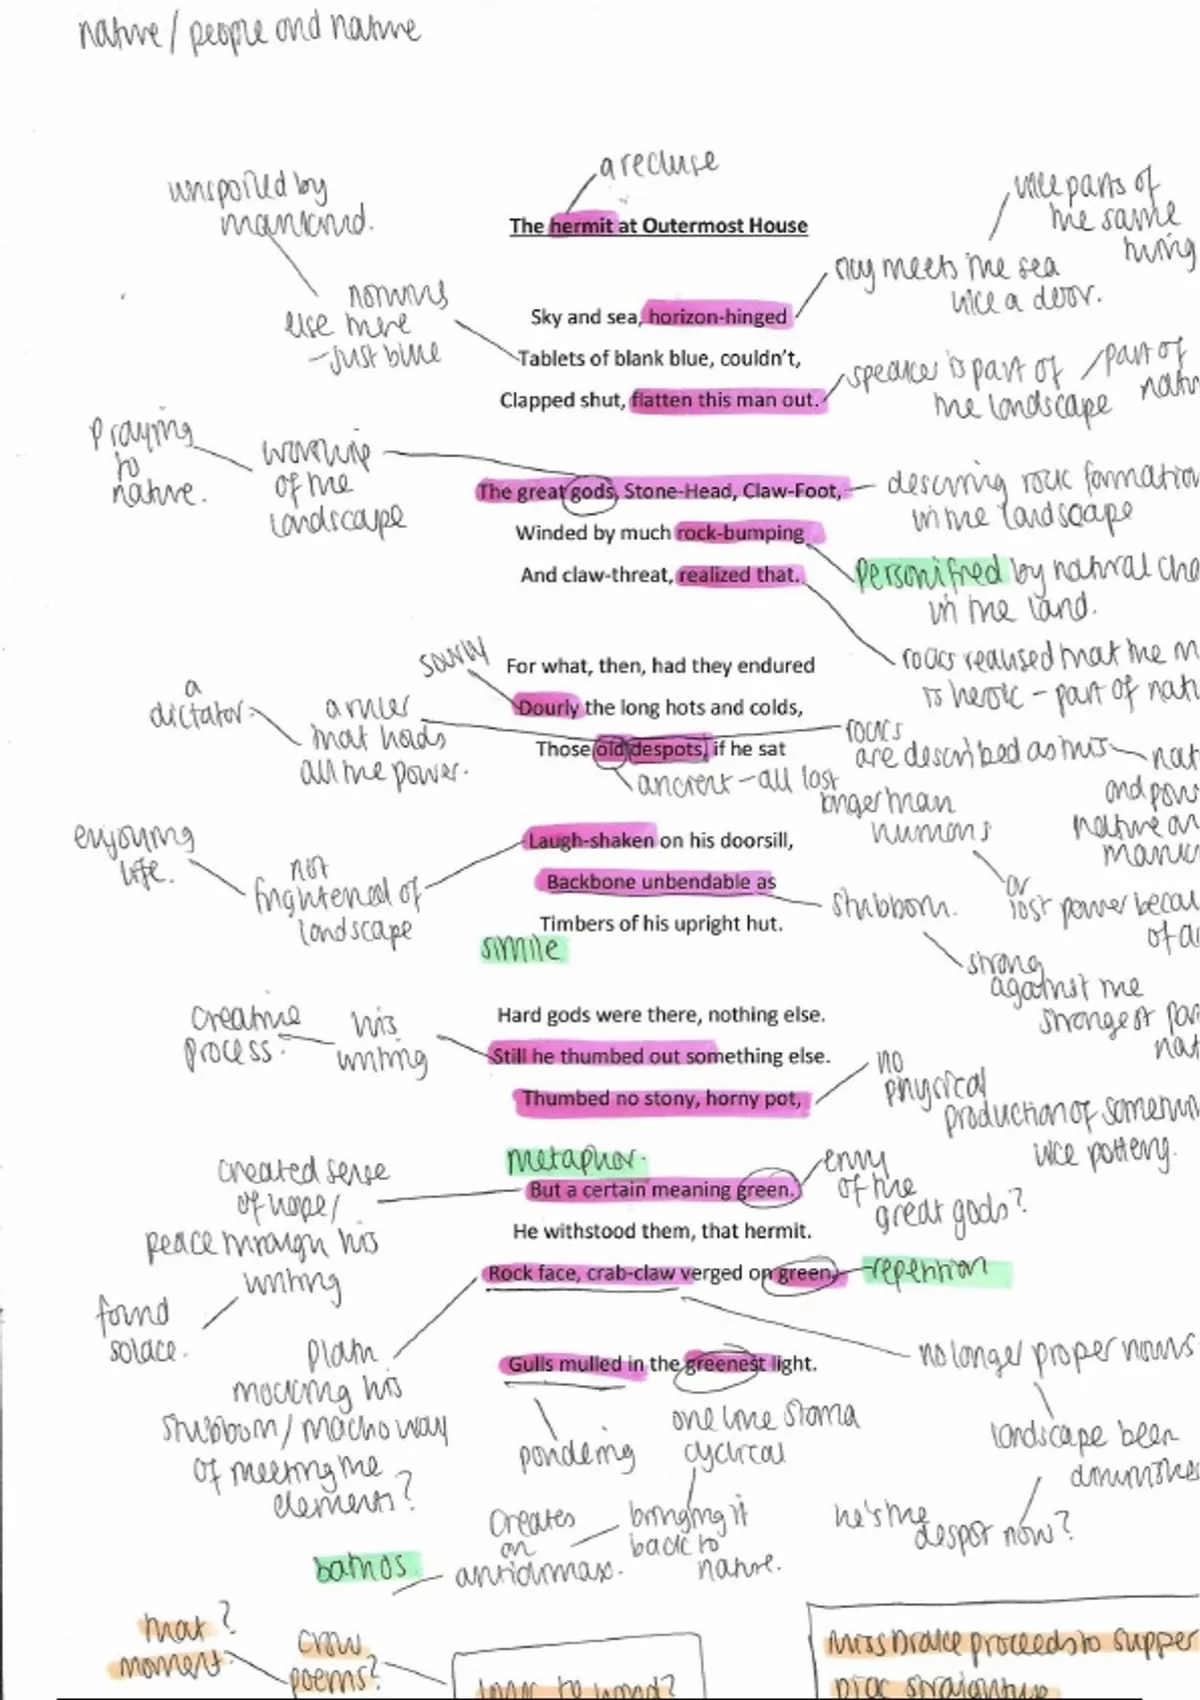 nature / people and nature
a recluse
unspoiled by
mankind.
The hermit at Outermost House
like parts of
the same
thing
sky meets the sea
like a door.
nothing
else there
- just blue
Sky and sea, horizon-hinged
Tablets of blank blue, couldn't,
Clapped shut, flatten this man out.
speaker is part of
the landscape
part of
natu
Praying
to
nature.
worship
of the
landscape
The great gods, Stone-Head, Claw-Foot,
Winded by much rock-bumping
And claw-threat, realized that.
describing rock formation
in the landscape
Personified by natural cha
in the land.
rocks realised that the m
is heroic - part of natu
sourly
For what, then, had they endured
Dourly the long hots and colds,
Those old despots, if he sat
a
dictator.
a ruler
that holds
all the power.
rocks
are described as this
ancient - all last
longer than
humans
nat
and pow
nature an
mank
or
lost power becau
of a
enjoying
life.
not
frightened of
landscape
Laugh-shaken on his doorsill,
Backbone unbendable as
Timbers of his upright hut.
simile
stubborn.
strong
against the
strongest par
nat
creative
process.
his
writing
Hard gods were there, nothing else.
Still he thumbed out something else.
Thumbed no stony, horny pot,
no
physical
production of somethin
like pottery.
metaphor.
But a certain meaning green.
He withstood them, that hermit.
Rock face, crab-claw verged on green.
envy
of the
great gods?
repetition
created sense
of hope/
peace through his
writing
found
solace.
Plath
mocking his
stubborn / macho way
of meeting the
elements?
Gulls mulled in the greenest light.
no longer proper nouns
landscape been
diminished
he's the
despot now?
pondering
one line stanza
cyclical
creates
an
anticlimax.
bringing it
back to
nature.
bathos
that?
moment.
crow
poems?
Miss Drake proceeds to supper